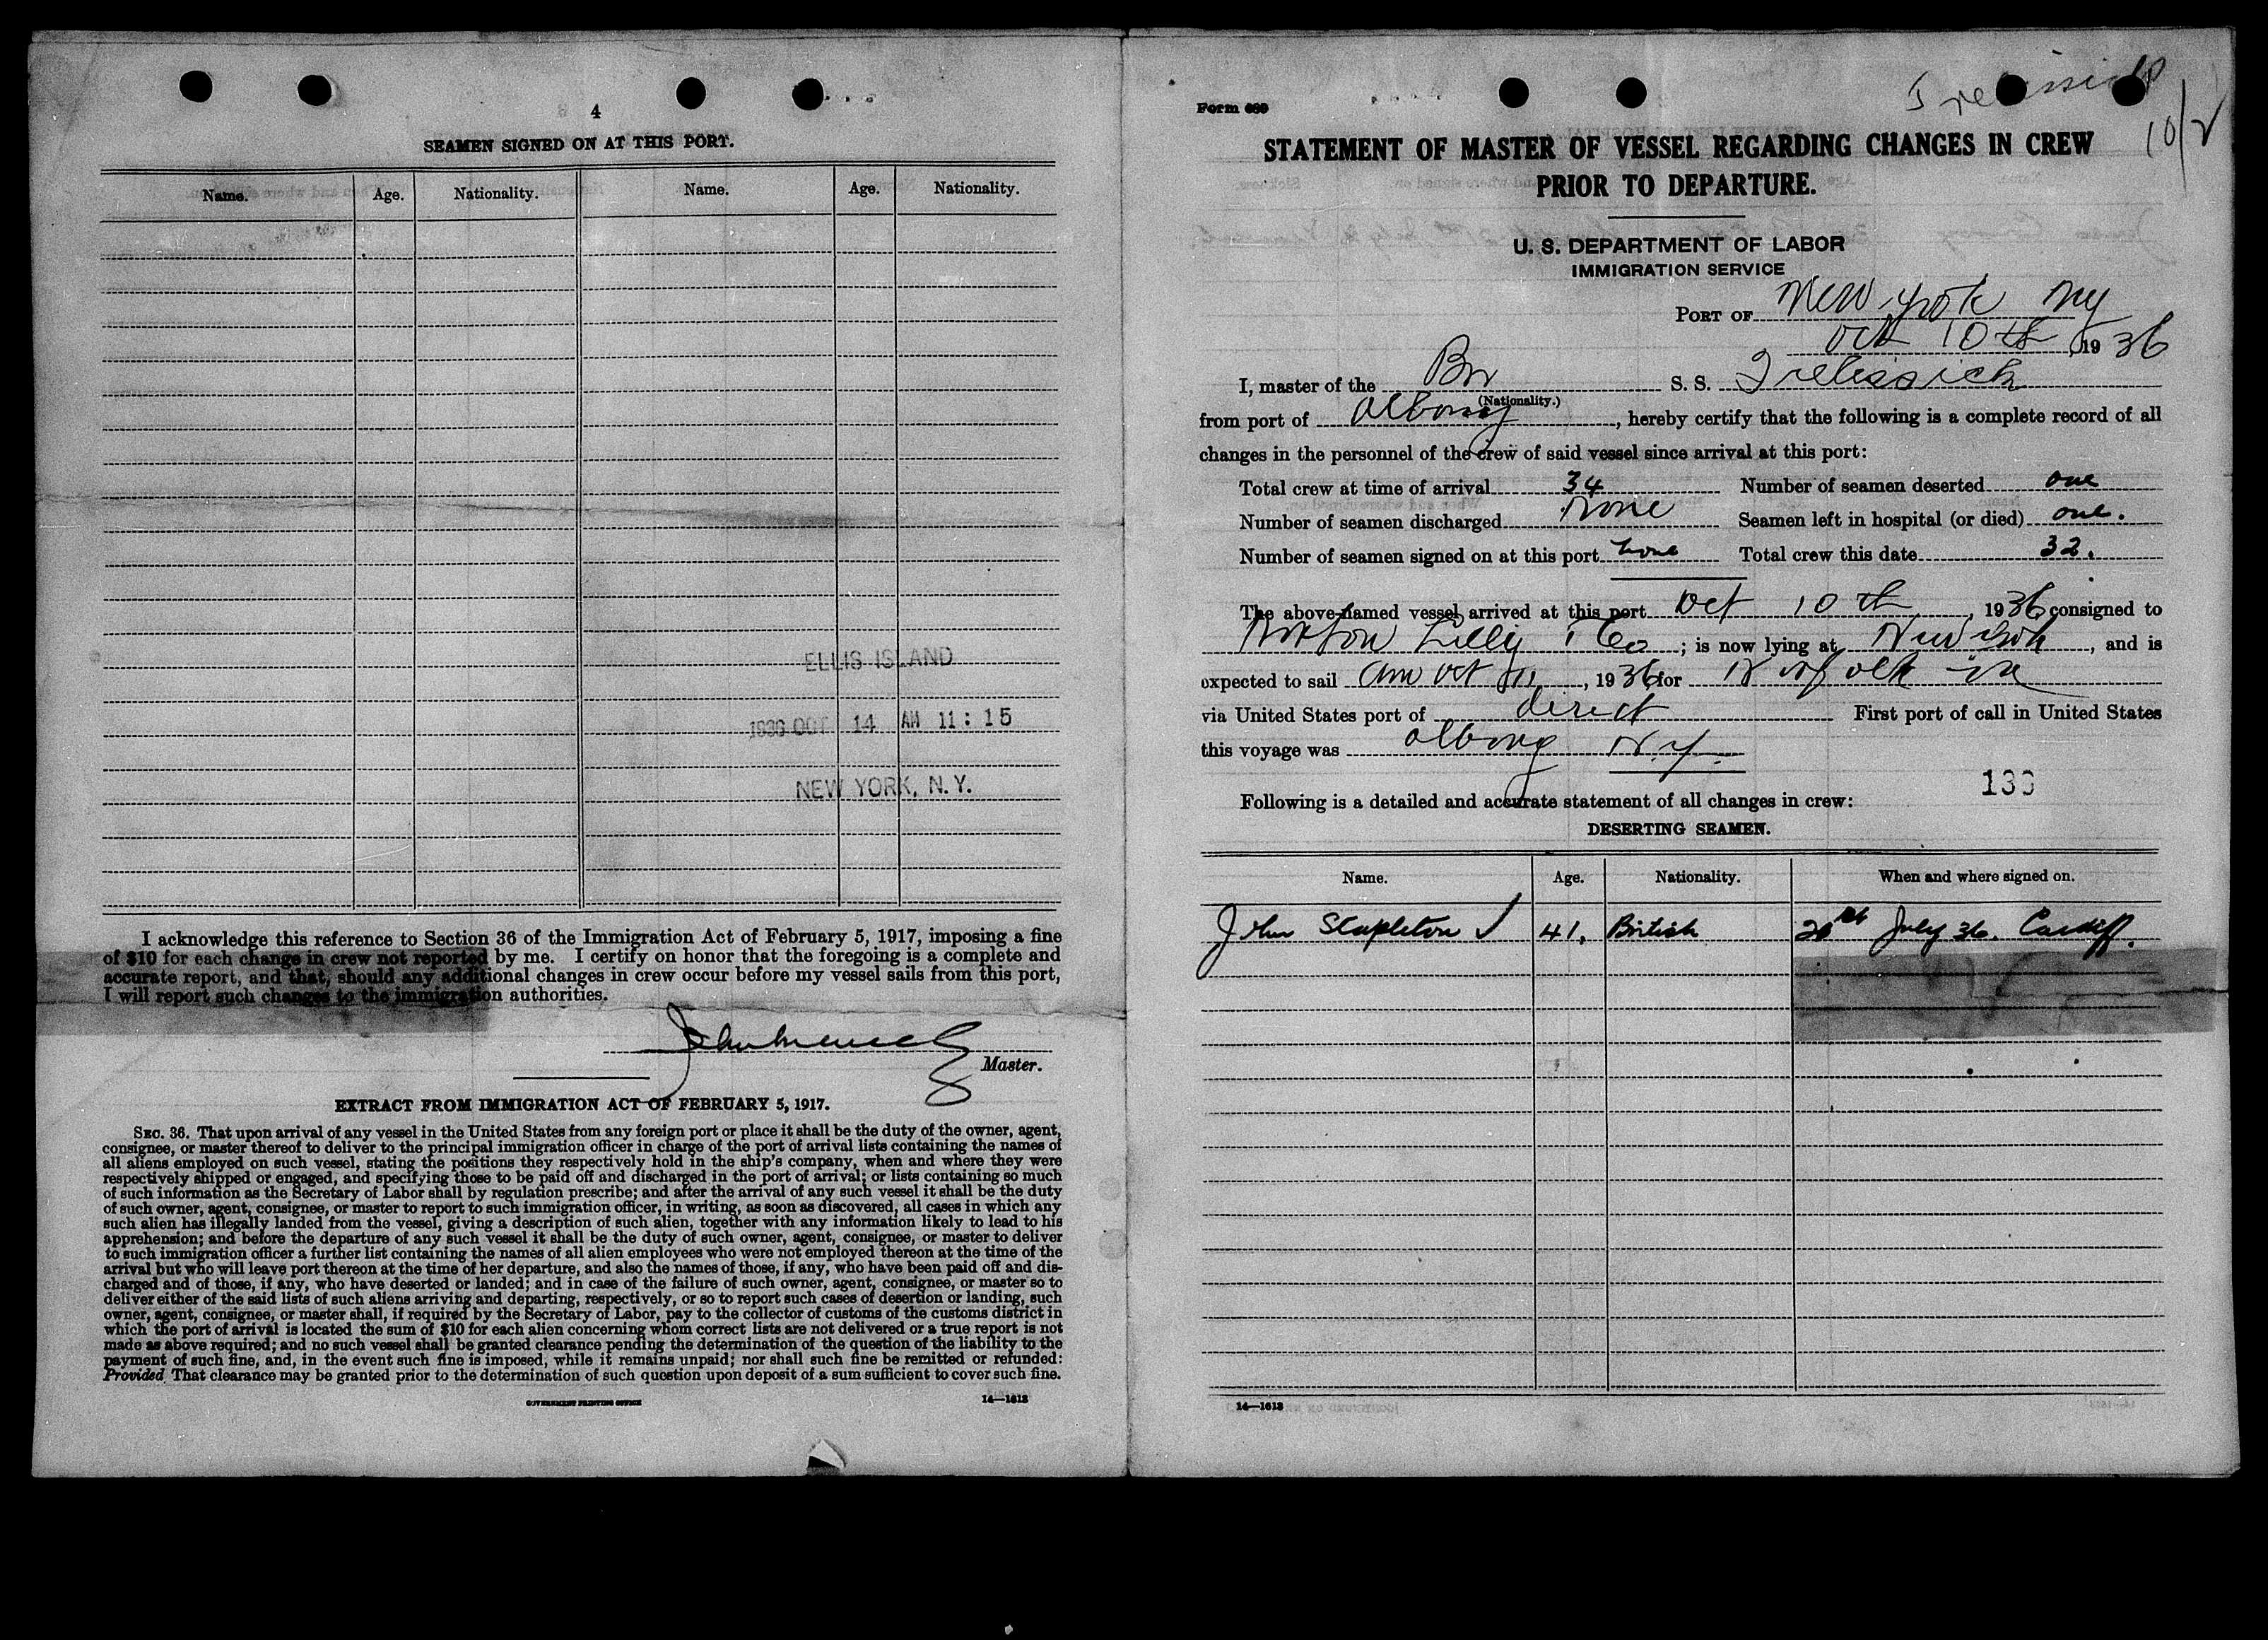 4
SEAMEN SIGNED ON AT THIS PORT.
Name. Age. Nationality. Name. Age. Nationality.
ELLIS ISLAND
1936 OCT 14 AM 11:15
NEW YORK, N.Y.
I acknowledge this reference to Section 36 of the Immigration Act of February 5, 1917, imposing a fine
of $10 for each change in crew not reported by me. I certify on honor that the foregoing is a complete and
accurate report, and that, should any additional changes in crew occur before my vessel sails from this port,
I will report such changes to the immigration authorities.
Master.
EXTRACT FROM IMMIGRATION ACT OF FEBRUARY 5, 1917.
SEC. 36. That upon arrival of any vessel in the United States from any foreign port or place it shall be the duty of the owner, agent,
consignee, or master thereof to deliver to the principal immigration officer in charge of the port of arrival lists containing the names of
all aliens employed on such vessel, stating the positions they respectively hold in the ship's company, when and where they were
respectively shipped or engaged, and specifying those to be paid off and discharged in the port of arrival; or lists containing so much
of such information as the Secretary of Labor shall by regulation prescribe; and after the arrival of any such vessel it shall be the duty
of such owner, agent, consignee, or master to report to such immigration officer, in writing, as soon as discovered, all cases in which any
such alien has illegally landed from the vessel, giving a description of such alien, together with any information likely to lead to his
apprehension; and before the departure of any such vessel it shall be the duty of such owner, agent, consignee, or master to deliver
to such immigration officer a further list containing the names of all alien employees who were not employed thereon at the time of the
arrival but who will leave port thereon at the time of her departure, and also the names of those, if any, who have been paid off and dis-
charged and of those, if any, who have deserted or landed; and in case of the failure of such owner, agent, consignee, or master so to
deliver either of the said lists of such aliens arriving and departing, respectively, or so to report such cases of desertion or landing, such
owner, agent, consignee, or master shall, if required by the Secretary of Labor, pay to the collector of customs of the customs district in
which the port of arrival is located the sum of $10 for each alien concerning whom correct lists are not delivered or a true report is not
made as above required; and no such vessel shall be granted clearance pending the determination of the question of the liability to the
payment of such fine, and, in the event such fine is imposed, while it remains unpaid; nor shall such fine be remitted or refunded:
Provided That clearance may be granted prior to the determination of such question upon deposit of a sum sufficient to cover such fine.
GOVERNMENT PRINTING OFFICE 14—1613
Trelissick
10/2
Form 689
STATEMENT OF MASTER OF VESSEL REGARDING CHANGES IN CREW
PRIOR TO DEPARTURE.
U. S. DEPARTMENT OF LABOR
IMMIGRATION SERVICE
PORT OF New York NY
Oct 10th, 1936
I, master of the Br S. S. Trelissick
(Nationality.)
from port of Albany, hereby certify that the following is a complete record of all
changes in the personnel of the crew of said vessel since arrival at this port:
Total crew at time of arrival 34 Number of seamen deserted one
Number of seamen discharged None Seamen left in hospital (or died) one.
Number of seamen signed on at this port none Total crew this date 32.
The above-named vessel arrived at this port Oct 10th, 1936 consigned to
Norton Lilly & Co; is now lying at New York, and is
expected to sail am Oct 11, 1936 for Norfolk Va
via United States port of direct First port of call in United States
this voyage was Albany N.Y.
Following is a detailed and accurate statement of all changes in crew:
DESERTING SEAMEN.
Name. Age. Nationality. When and where signed on.
John Stapleton 41. British July 36. Cardiff.
14—1613